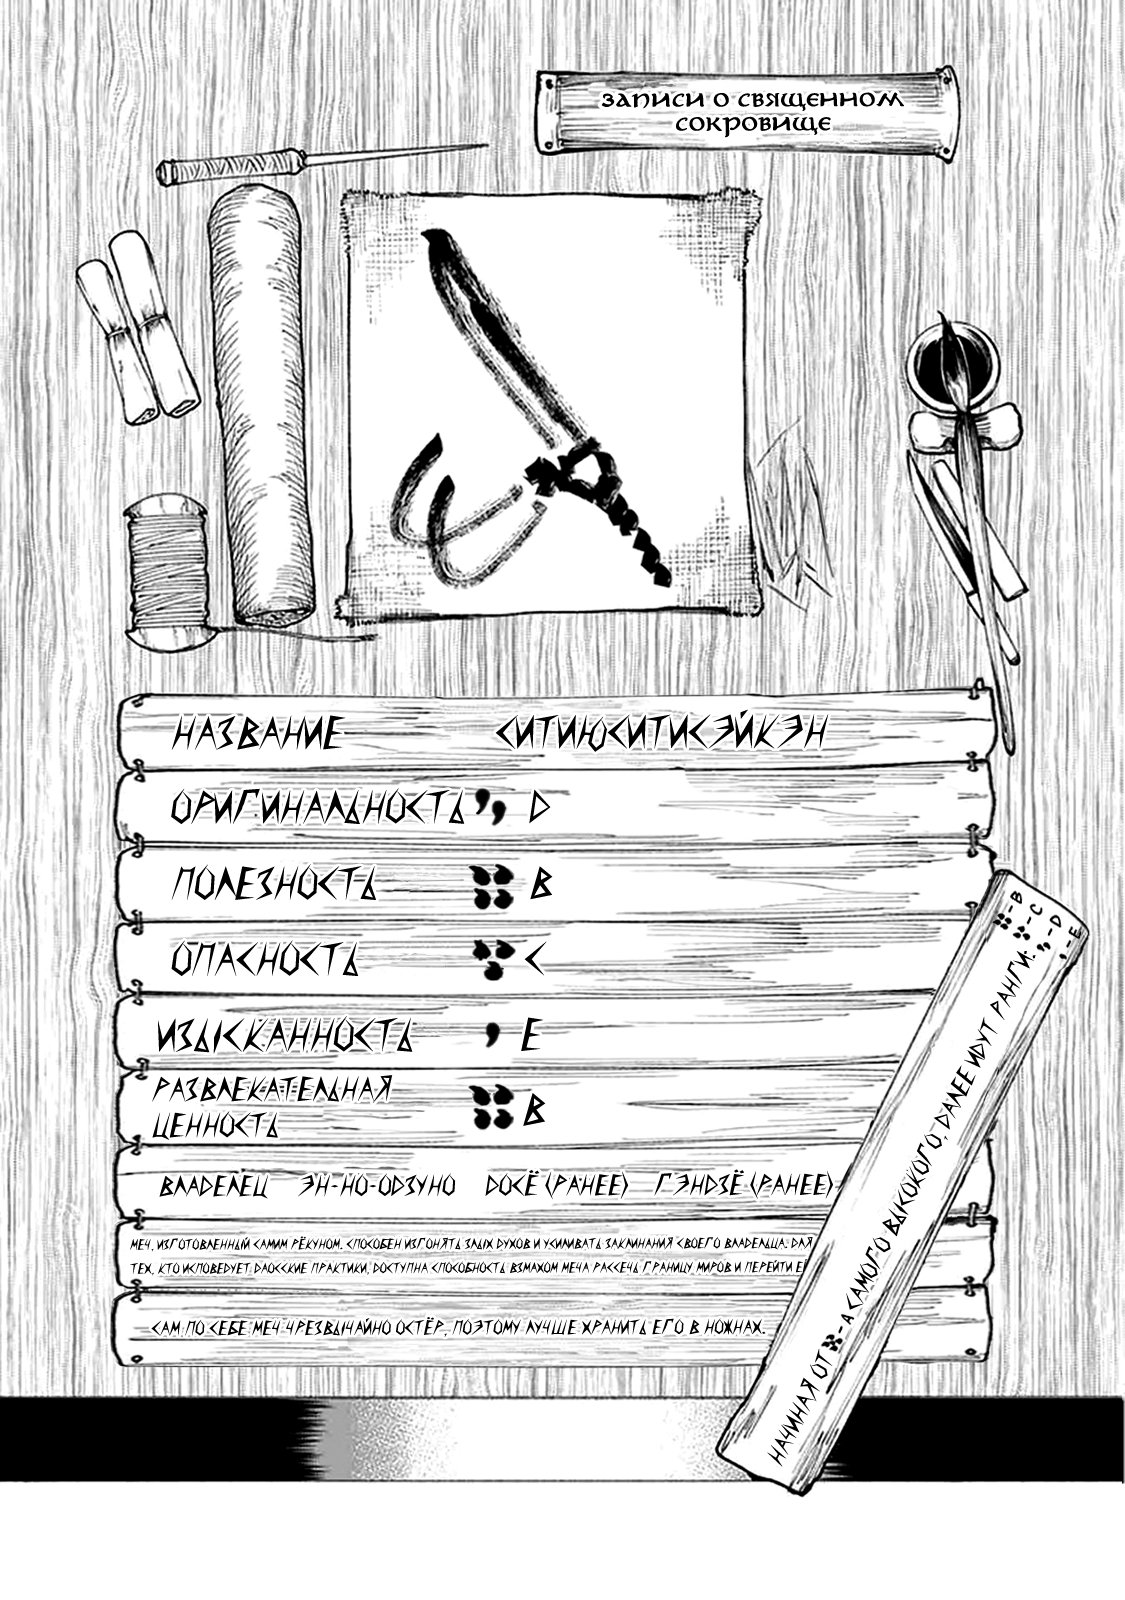 ЗАПИСИ О СВЯЩЕННОМ
СОКРОВИЩЕ
НАЗВАНИЕ СИТИЮСИТИСЭЙКЭН
ОРИГИНАЛЬНОСТЬ D
ПОЛЕЗНОСТЬ B
ОПАСНОСТЬ C
ИЗЫСКАННОСТЬ E
РАЗВЛЕКАТЕЛЬНАЯ
ЦЕННОСТЬ B
ВЛАДЕЛЕЦ ЭН-НО-ОДЗУНО ДОСЁ (РАНЕЕ) ГЭНДЗЁ (РАНЕЕ)
МЕЧ, ИЗГОТОВЛЕННЫЙ САМИМ РЁКУНОМ. СПОСОБЕН ИЗГОНЯТЬ ЗЛЫХ ДУХОВ И УСИЛИВАТЬ ЗАКЛИНАНИЯ СВОЕГО ВЛАДЕЛЬЦА. ДЛЯ
ТЕХ, КТО ИСПОВЕДУЕТ ДАОССКИЕ ПРАКТИКИ, ДОСТУПНА СПОСОБНОСТЬ ВЗМАХОМ МЕЧА РАССЕЧЬ ГРАНИЦУ МИРОВ И ПЕРЕЙТИ
САМ ПО СЕБЕ МЕЧ ЧРЕЗВЫЧАЙНО ОСТЁР, ПОЭТОМУ ЛУЧШЕ ХРАНИТЬ ЕГО В НОЖНАХ.
НАЧИНАЯ ОТ - A САМОГО ВЫСОКОГО, ДАЛЕЕ ИДУТ РАНГИ:
- B
- C
- D
- E